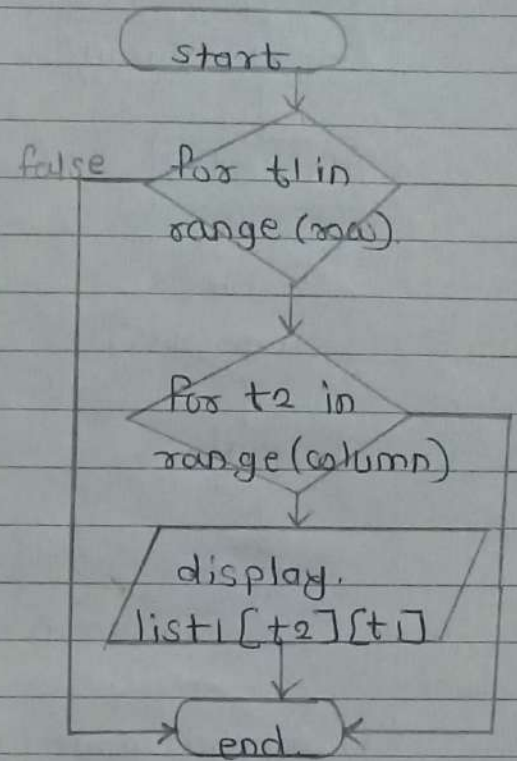 start
false
for t1 in
range (row)
for t2 in
range (column)
display.
list1 [t2] [t1]
end.